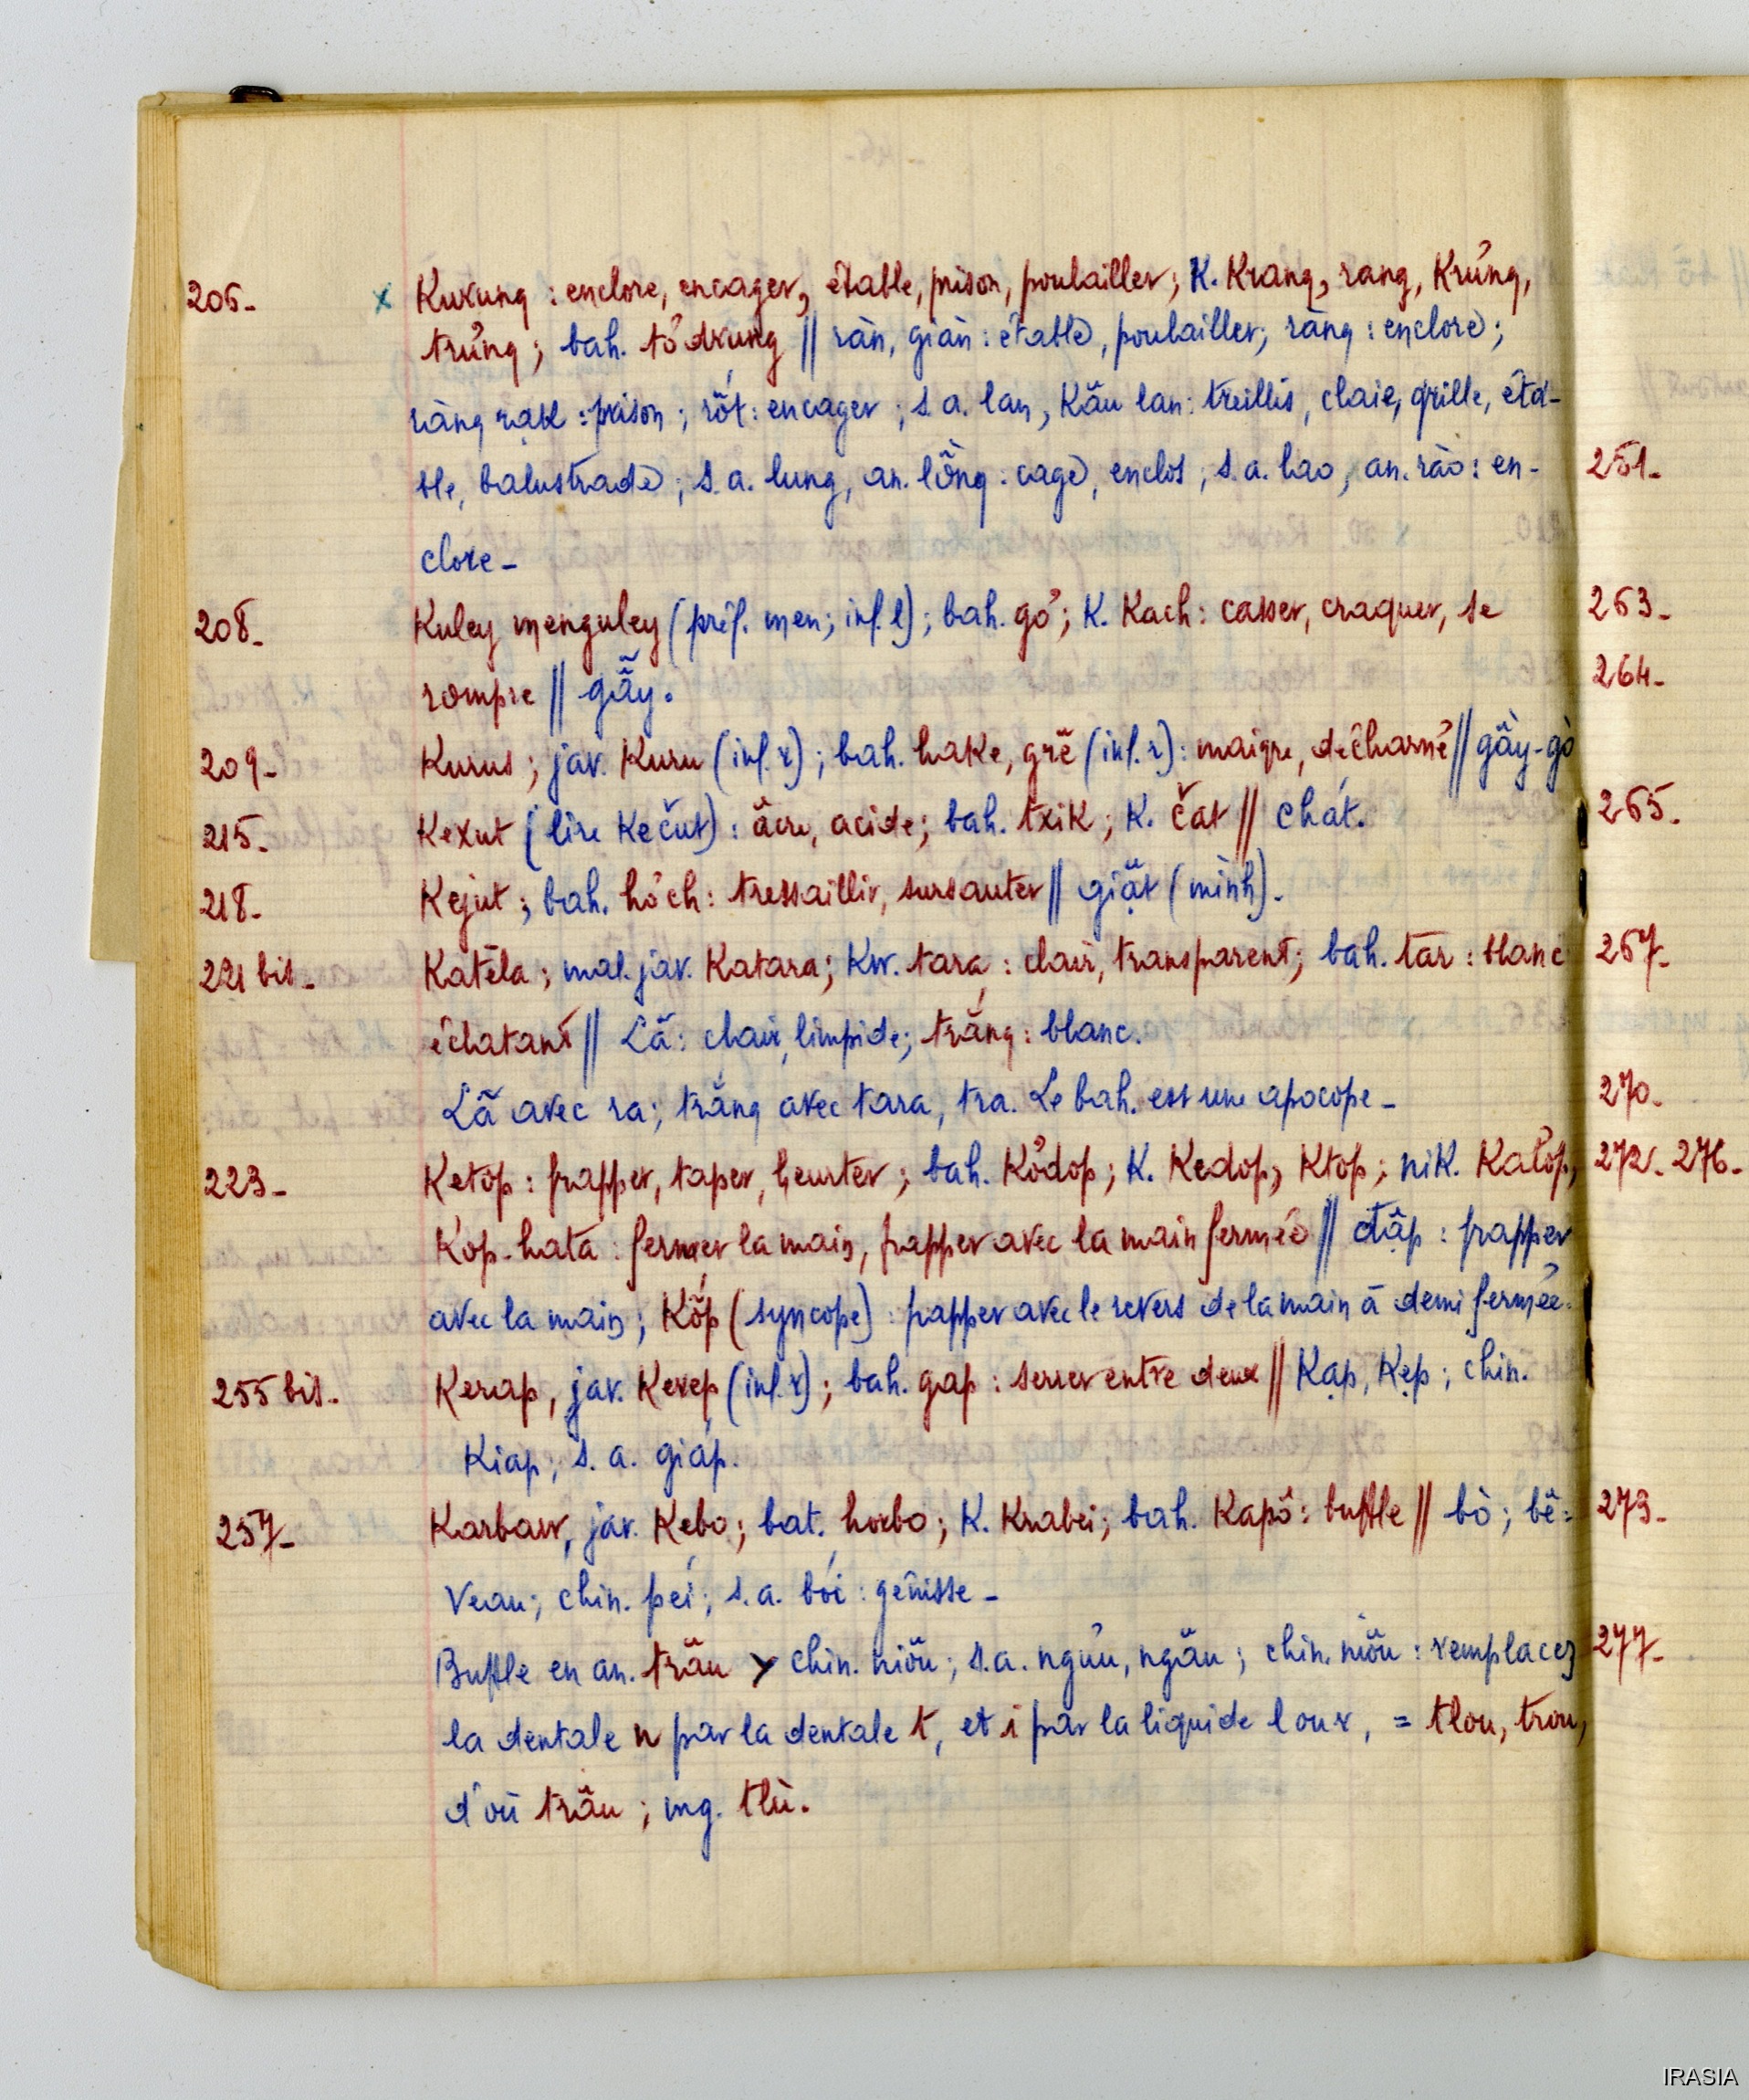 206_ x Kurung : enclore, encager, étable, prison, poulailler; K. Krang, rang, Krưng,
trưng; bah. tơdrung // ràn, giàn : étable, poulailler; ràng : enclore;
ràng rạk : prison; rốt : encager; s.a. lan, Kâu lan : treillis, claie, grille, éta-
ble, balustrade; s.a. lung, an. lồng : cage, enclos; s.a. lao, an. rào : en-
clore_
208_ Kuley menguley (préf. men; inf. l); bah. gơ; K. Kach : casser, craquer, se
rompre // gẫy.
209_ Kurus; jav. Kuru (inf. r); bah. hake, grĕ (inf. r) : maigre, décharné // gầy-gò
215_ Kexut (lire Kečut) : âcre, acide; bah. txik; K. čat // chát.
218_ Kejut; bah. hơch : tressaillir, sursauter // giật (mình)_
221 bis_ Katēla; mal. jav. Katara; Kw. tara : clair, transparent; bah. tar : blanc
éclatant // Lã : clair, limpide; trắng : blanc.
Lã avec ra; trắng avec tara, tra. Le bah. est une apocope_
223_ Ketop : frapper, taper, heurter; bah. Kơdop; K. Kedop, Ktop; nik. Katơp,
Kop-hata : fermer la main, frapper avec la main fermée // đập : frapper
avec la main; Kốp (syncope) : frapper avec le revers de la main à demi fermée.
255 bis_ Kerap, jav. Kerep (inf. r); bah. gap : serrer entre deux // Kạp, Kẹp; chin.
Kiap, s.a. giáp.
257_ Karbaw, jav. Kebo; bat. horbo; K. Krabei; bah. Kapô : buffle // bò; bê :
veau; chin. péi; s.a. bói : génisse_
Buffle en an. trâu > chin. niôu; s.a. ngưu, ngâu; chin. niôu : remplacez
la dentale n par la dentale t, et i par la liquide l ou r, = tlou, trou,
d'où trâu; mg. tlù.
251_
263_
264_
265_
267_
270_
272_ 276_
273_
277_
IRASIA